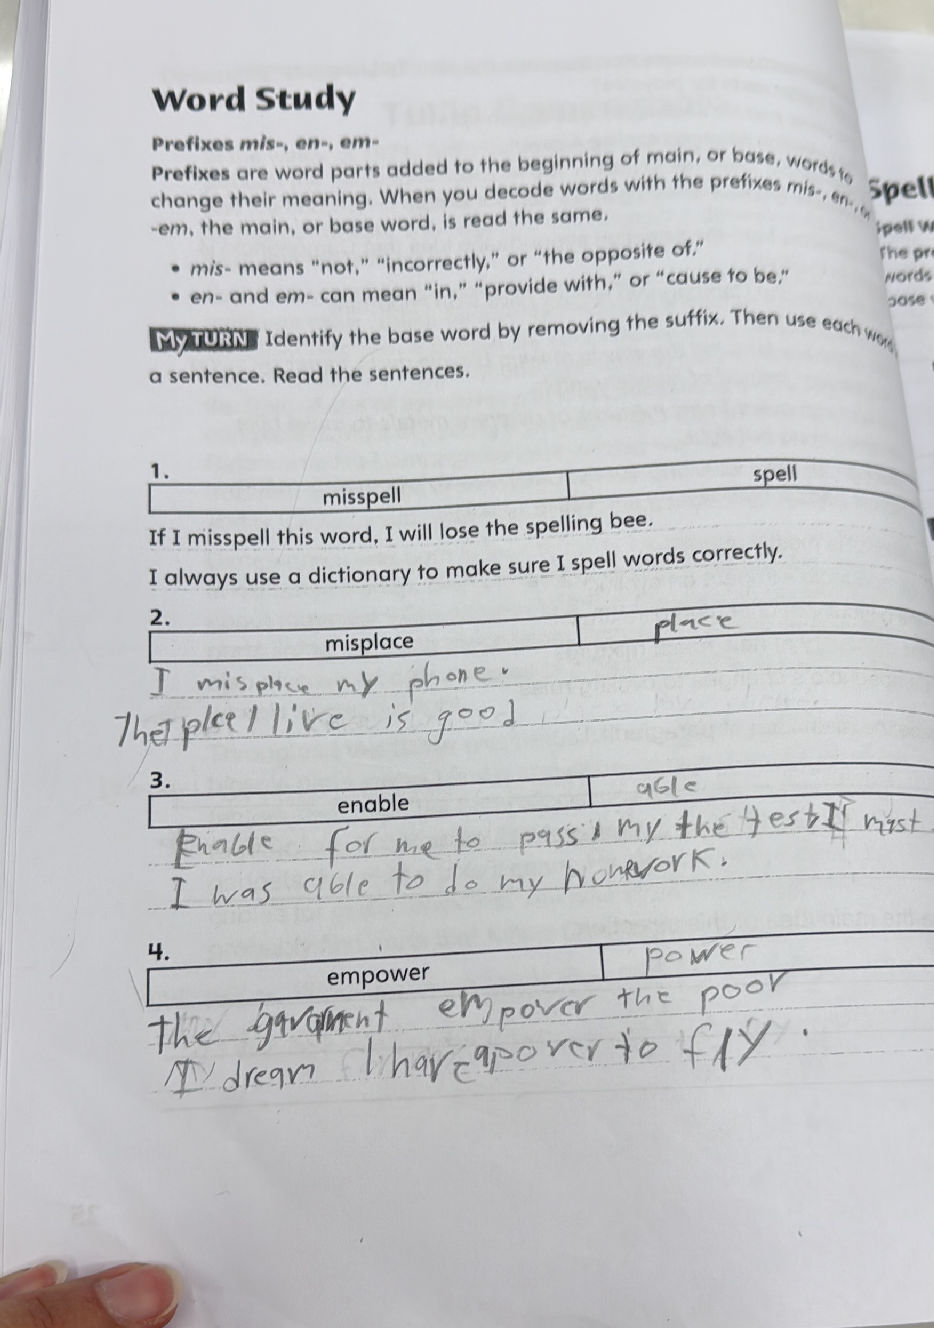 Word Study
Prefixes mis-, en-, em-
Prefixes are word parts added to the beginning of main, or base, words to
change their meaning. When you decode words with the prefixes mis-, en-, or
-em, the main, or base word, is read the same.
• mis- means "not," "incorrectly," or "the opposite of."
• en- and em- can mean "in," "provide with," or "cause to be."
My TURN Identify the base word by removing the suffix. Then use each word
a sentence. Read the sentences.
1.
misspell spell
If I misspell this word, I will lose the spelling bee.
I always use a dictionary to make sure I spell words correctly.
2.
misplace place
I misplace my phone.
The place I live is good
3.
enable able
Enable for me to pass my the test I must
I was able to do my homework.
4.
empower power
the empover the poor
I dream I have a pover to fly.
Spell
Spell w
The pre
words
base